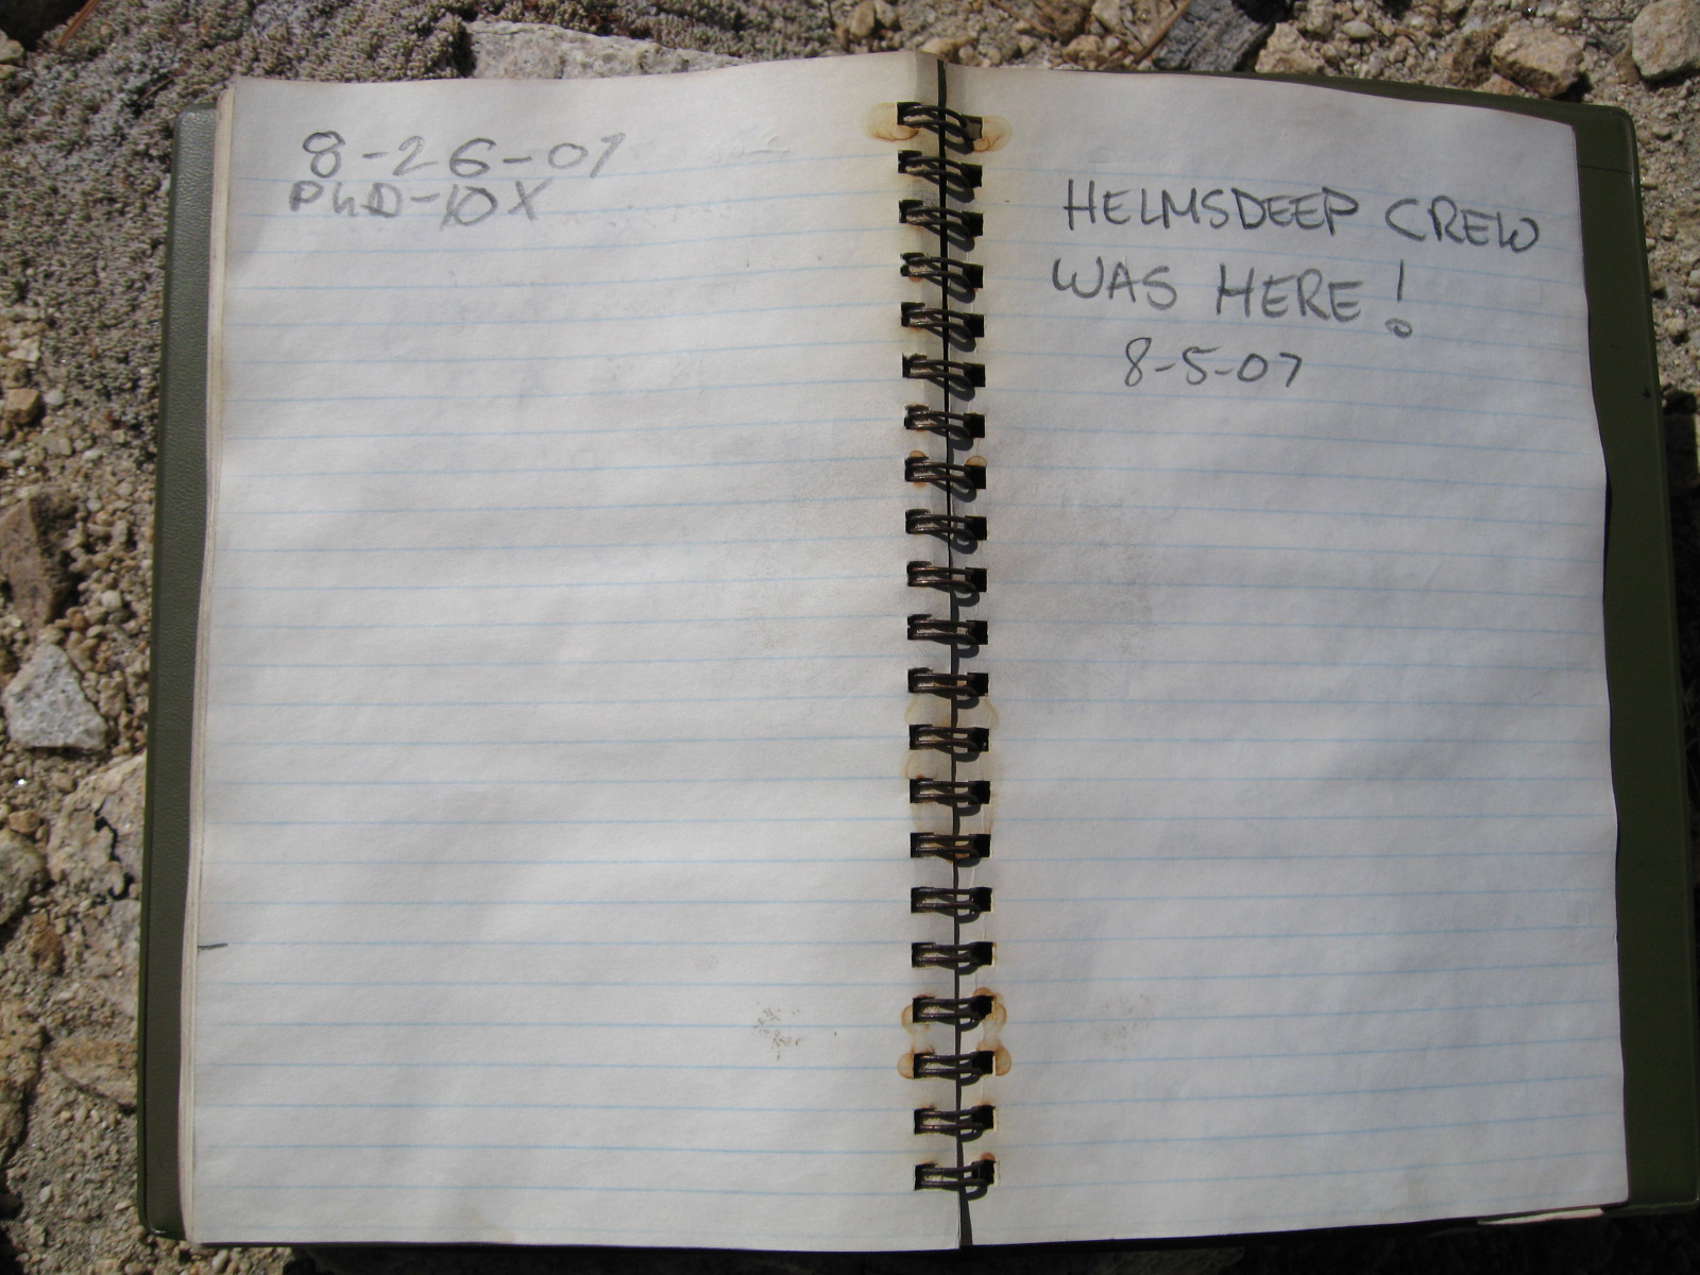 8-26-07
PhD-10X
HELMSDEEP CREW
WAS HERE!
8-5-07